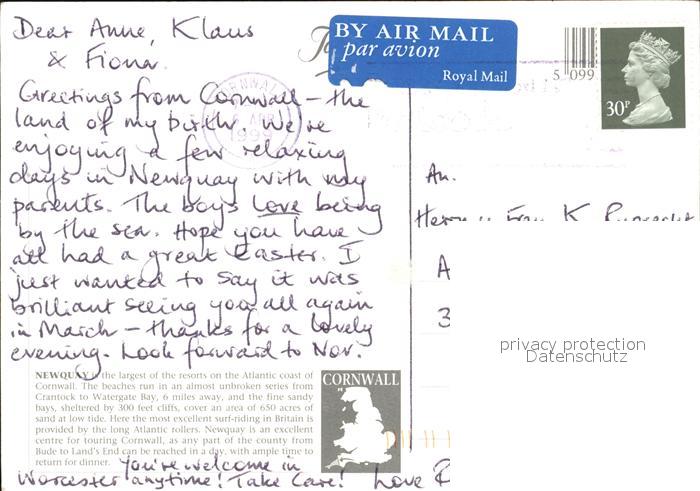 Dear Anne, Klaus
& Fiona.
Greetings from Cornwall – the
land of my birth. We're
enjoying a few relaxing
days in Newquay with my
parents. The boys love being
by the sea. Hope you have
all had a great Easter. I
just wanted to say it was
brilliant seeing you all again
in March – thanks for a lovely
evening. Look forward to Nov.
You're welcome in
Worcester anytime! Take Care! Love
BY AIR MAIL
par avion
Royal Mail
5 099
30P
CORNWALL
APR
1999
An.
Herrn u Frau K Ruprecht
A
3
privacy protection
Datenschutz
NEWQUAY is the largest of the resorts on the Atlantic coast of
Cornwall. The beaches run in an almost unbroken series from
Crantock to Watergate Bay, 6 miles away, and the fine sandy
bays, sheltered by 300 feet cliffs, cover an area of 650 acres of
sand at low tide. Here the most excellent surf-riding in Britain is
provided by the long Atlantic rollers. Newquay is an excellent
centre for touring Cornwall, as any part of the county from
Bude to Land's End can be reached in a day, with ample time to
return for dinner.
CORNWALL